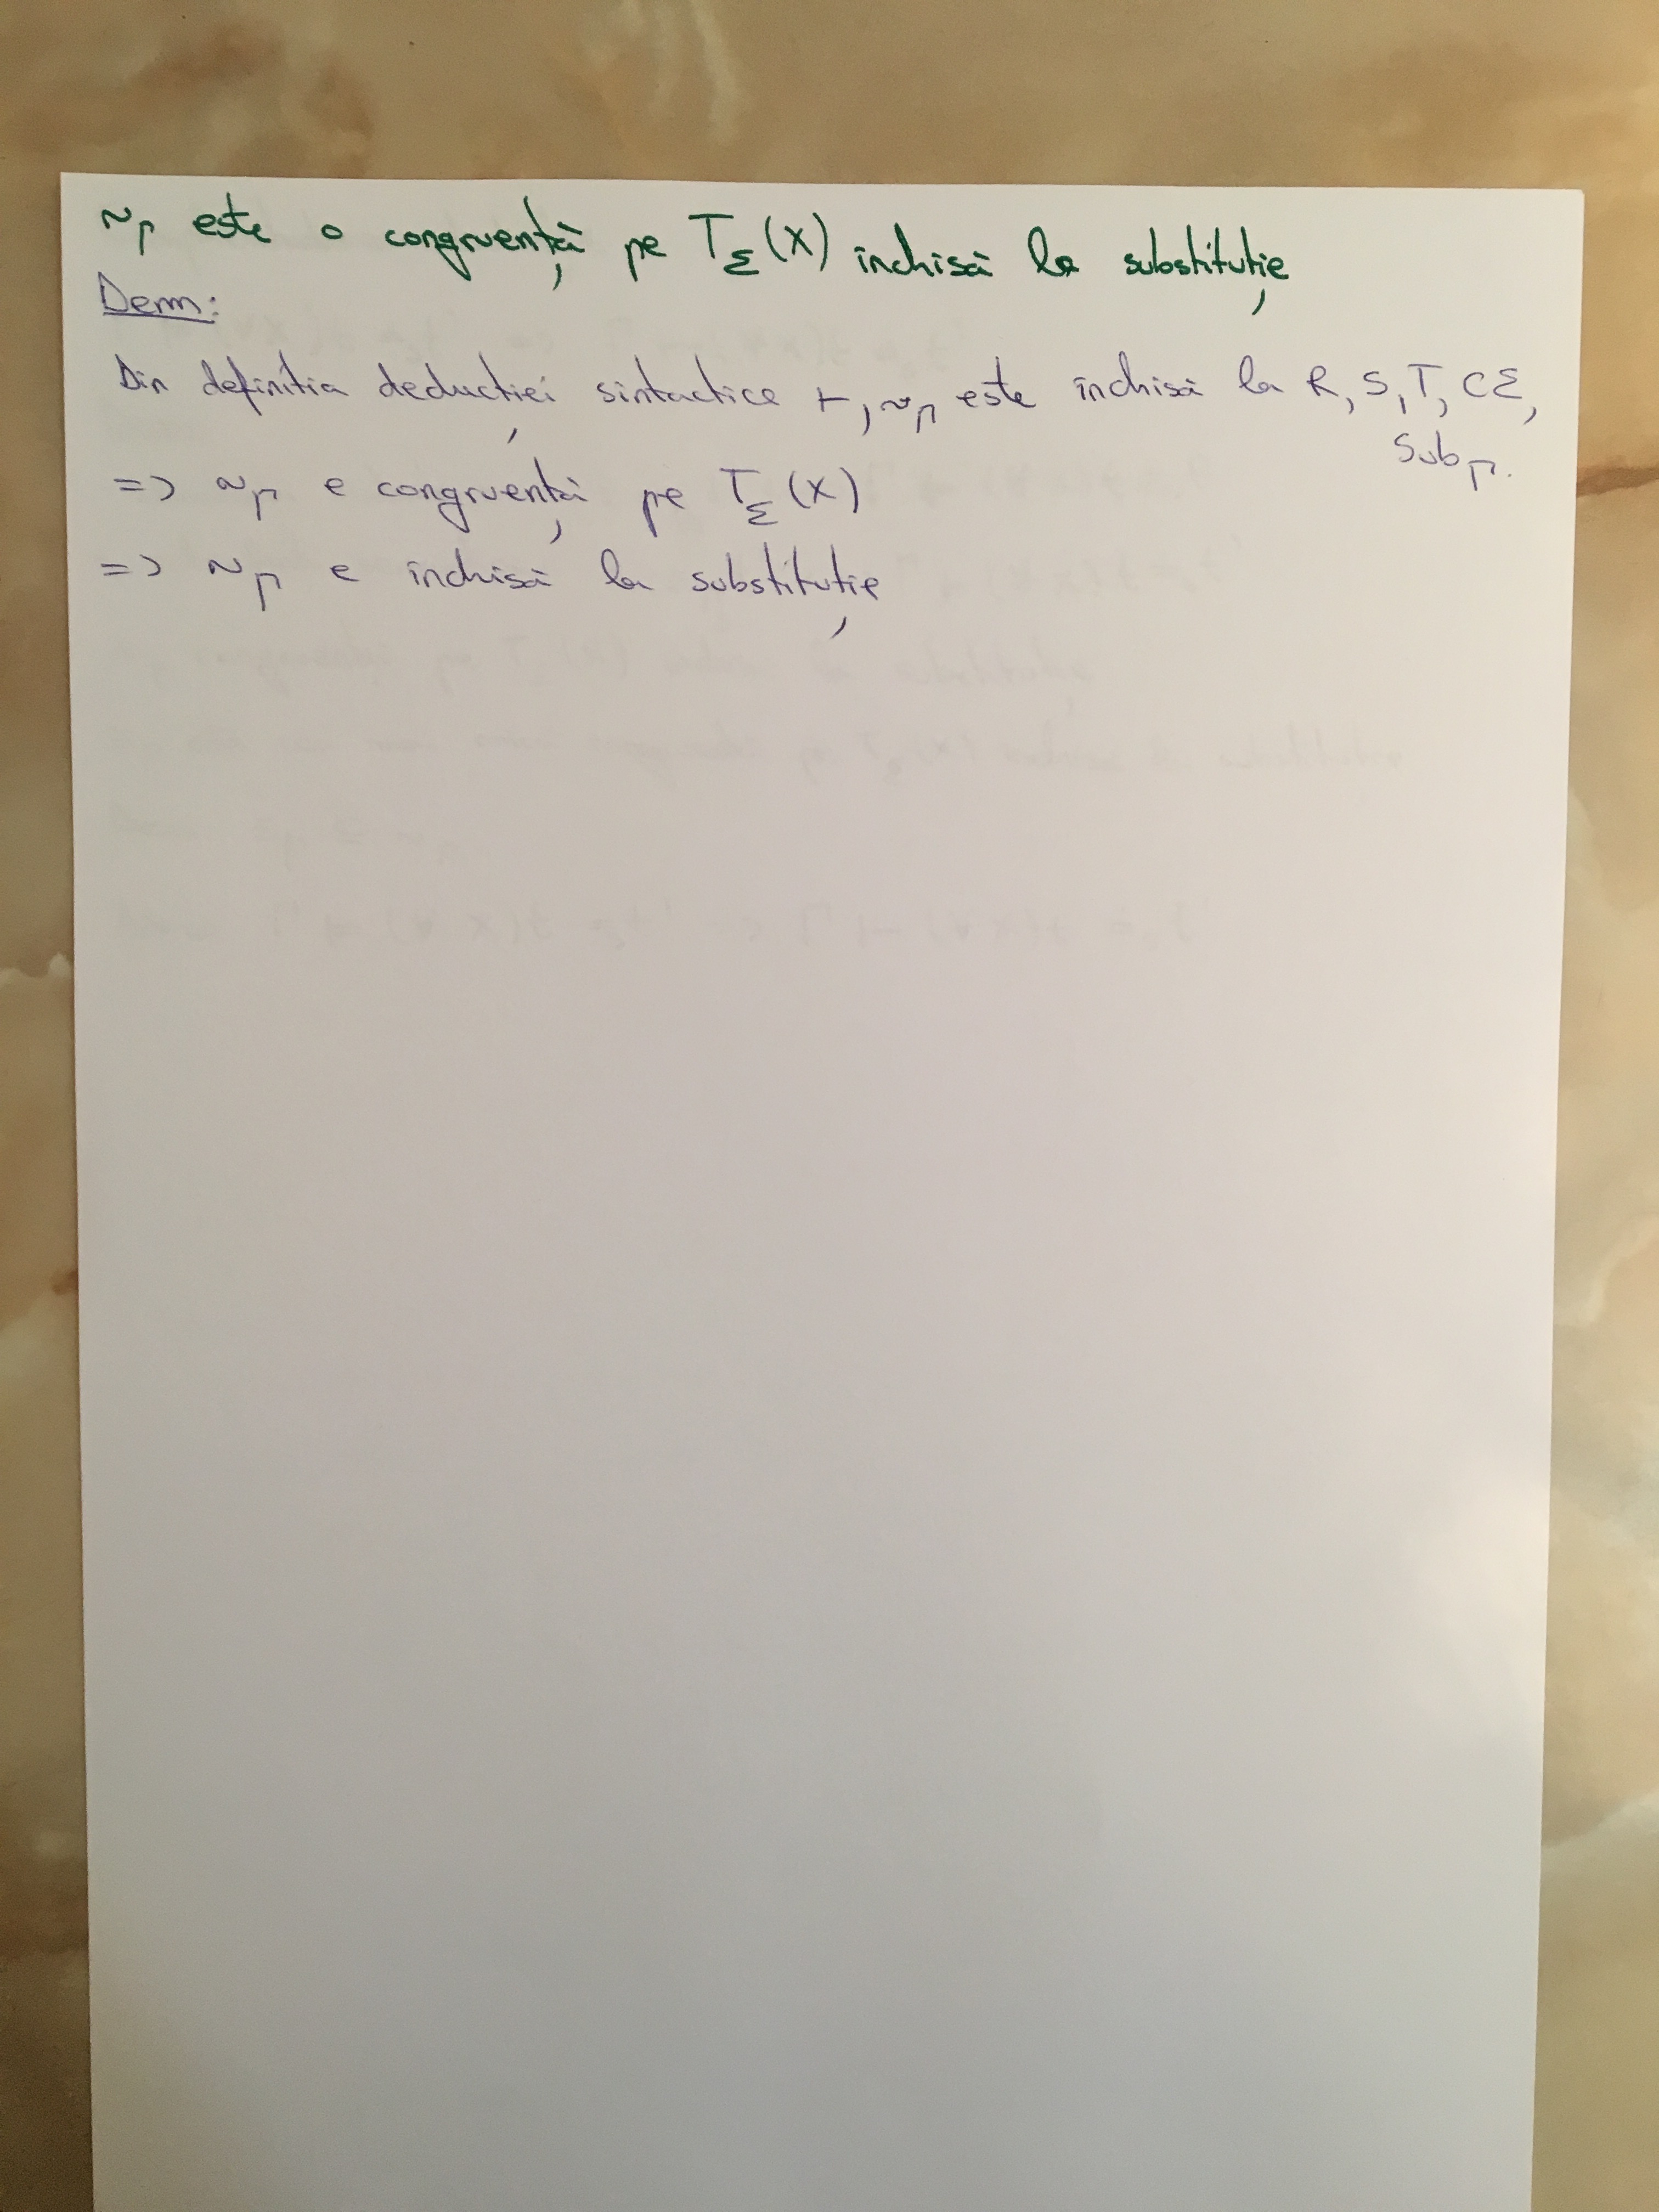 ~Γ este o congruență pe TΣ(X) închisă la substituție
Dem:
Din definitia deducției sintactice ⊢, ~Γ este închisă la R, S, T, CΣ,
SubΓ.
=> ~Γ e congruență pe TΣ(X)
=> ~Γ e închisă la substituție